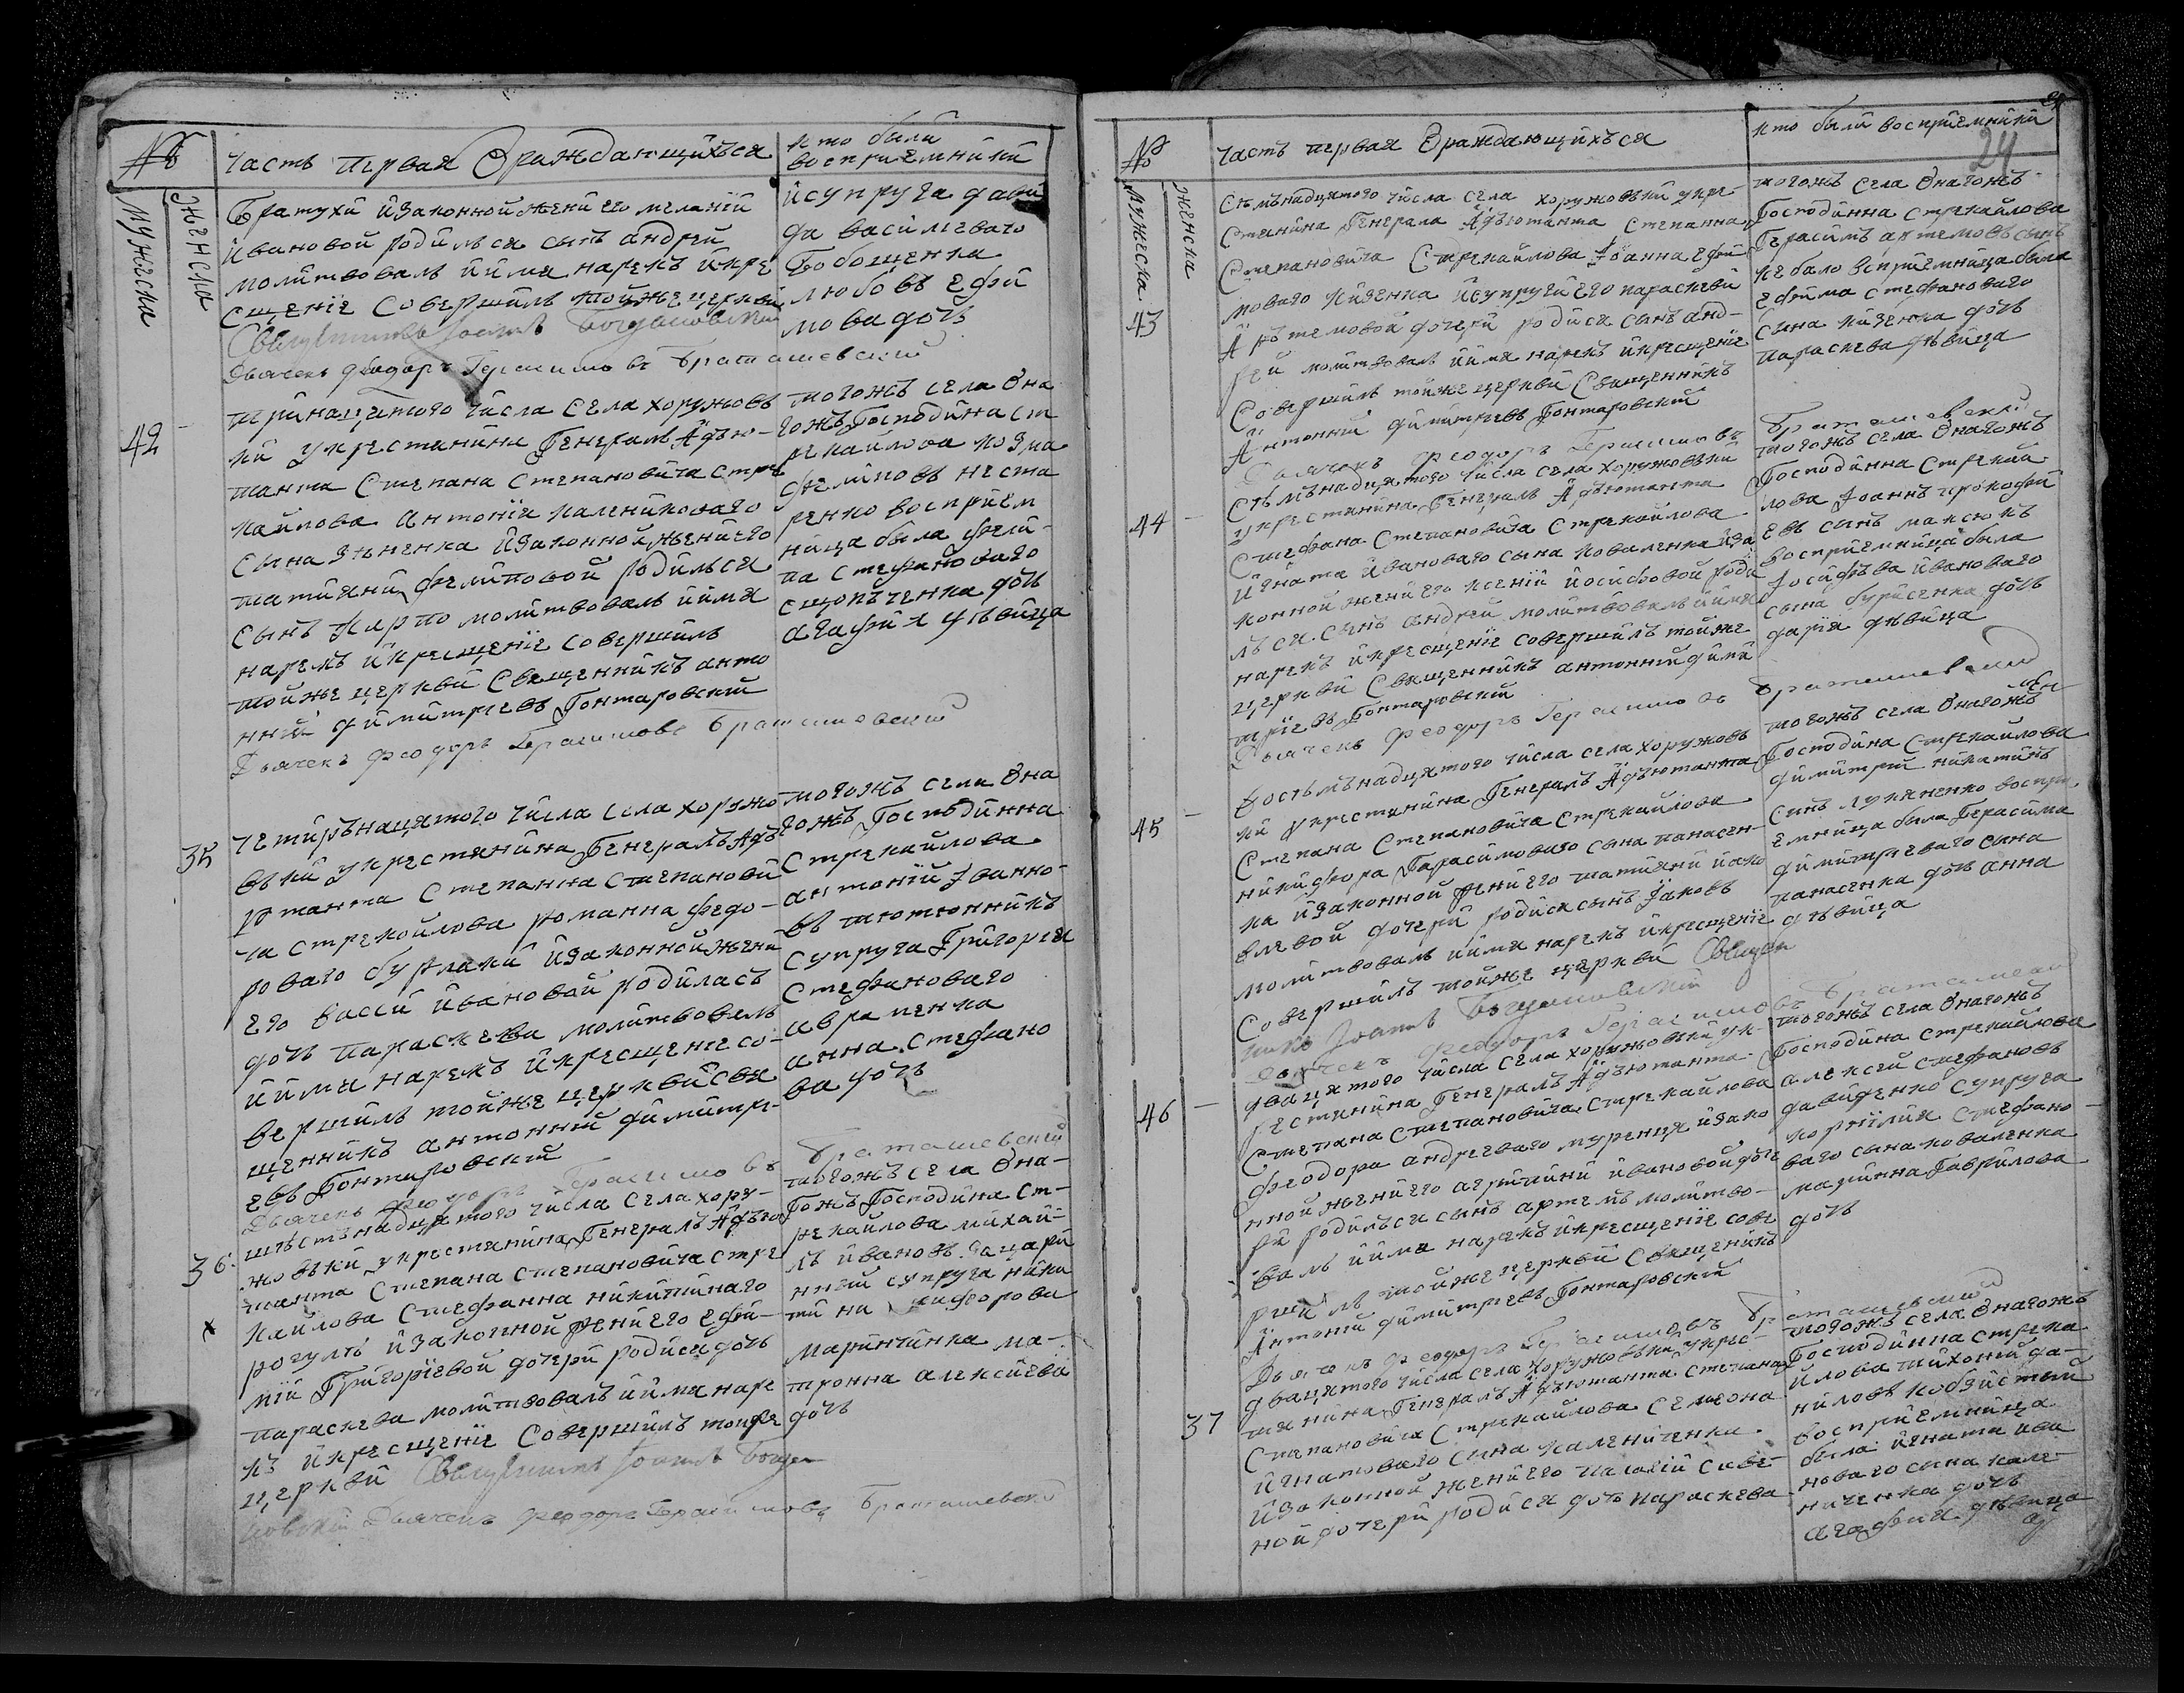 №
часть первая Ѡраждающихъся
кто были
восприемники
мужеска
женска
Братухи изаконной жени его меланїй
ивановой родилъся сынъ андрей
молитвовалъ иимя нарекъ икре
щенїе совершилъ тойже церкви
Священникъ Іоаннъ Богдановский
Дьячекъ Феодоръ Герасимовъ Браташевский
исупруга дави
да василеваго
Бобошенка
любовъ ефи
мова дочь
42
тринацятого числа села хоружов
ки укрестянина Генералъ Адъю-
танта Степана Степановича стре
кайлова антонїя каленйковаго
сына зѣненка изаконной жени его
татияни филиповой родилъся
сынъ Карпо молитвовалъ иимя
нарекъ икрещенїе совершилъ
тойже церкви Священникъ анто
нний димитриевъ Гонтаровский
Дьячекъ Феодоръ Герасимовъ Браташовский
тогожъ села Она
гожъ Господина ст
рекайлова козма
филиповъ неста
ренко восприем
ница была фили-
па стефановаго
сщопъченка дочь
агафия дѣвица
35
четирънацятого числа села хоружо-
вки укрестянина Генералъ Адъ
ютанта Степанна Степанови
ча стрекойлова романна федо-
роваго бурлаки изаконной жени
его васси ивановой родиласъ
дочь параскева молитвовалъ
иимя нарекъ икрещенїе со-
вершилъ тойже церкви свя
щенникъ антонний димитри-
евъ Гонтаровский
Дьячекъ Феодоръ Герасимовъ Браташевский
тогожъ села Она
гожъ Господинна
Стрекайлова
антонїй Іванно-
въ тютюнникъ
супруга Григория
стефановаго
авраменка
анна стефано
ва дочь
36
шѣстънадцятого числа села хору-
жовъки укрестянина Генералъ Адъю
танта Степана Степановича стре
кайлова Стефанна никитинаго
рогулѣ изаконной жени его ефи-
мїй Григорїевой дочери родися дочь
параскева молитвовалъ иимя наре
къ икрещенїе совершилъ тойже
церкви Священникъ Іоаннъ Богда
новский Дьячекъ Феодоръ Герасимовъ Браташевский
тогожъ села Она-
гожъ Господина Ст-
рекайлова михай-
лъ ивановъ захари
нний супруга ники
тй на никифорови
маринчинка ма-
тронна алексїева
дочь
№
часть первая Ѡраждающихъся
кто были восприемники
24
мужеска
женска
43
Сѣмънадцятого числа села хоружовъки укре-
стянина Генерала Адъютанта Степанна
Степановича Стрекайлова Іоанна ефи
моваго Кизенка исупруги его параскеви
Артемовой дочери родися сынъ анд-
рей молитвовалъ иимя нарекъ икрещенїе
Совершилъ тойже церкви Священникъ
Антонний димитриевъ Гонтаровский
Дьячекъ Феодоръ Герасимовъ Браташевский
тогожъ села Онагожъ
Господинна стрекайлова
Герасимъ артемовъ сынъ
кебало всприемница была
ефима стефановаго
сына кизенка дочь
параскева дѣвица
44
Сѣмънадцятого числа села хоружовъки
укрестянина Генералъ Адъютанта
Стефана Степановича Стрекайлова
Игната ивановаго сына коваленка иза
конной жени его ксенїй иосифовой роди
лъся сынъ андрей молитвовалъ иимя
нарекъ икрещенїе совершилъ тойже
церкви Священникъ антонний дими
трїевъ Гонтаровский
Дьячекъ Феодоръ Герасимовъ Браташевский
тогожъ села Онагожъ
Господинна Стрекай
лова Іоаннъ прокофи
евъ сынъ максюкъ
восприемница была
Іосифъва ивановаго
сына бурисенка дочь
дарїя дѣвица
45
восьмънадцятого числа села хоружовъ
ки укрестянина Генералъ Адъютанта
Степана Степановича Стрекайлова
никифора Гарасимоваго сына панасен-
ка изаконной жени его татияни иако
влевой дочери родися сынъ Іаковъ
молитвовалъ иимя нарекъ икрещенїе
Совершилъ тойже церкви Священ
никъ Іоаннъ Богдановский
Дьячекъ Феодоръ Герасимовъ
тогожъ села Онагожъ
Господина Стрекайлова
димитрий никитинъ
синъ лукяненко воспри
емница была Герасима
димитриеваго сына
панасенка дочь анна
дѣвица
46
двацятого числа села хоружовъки ук-
рестянина Генералъ Адъютанта
Степана Степановича Стрекайлова
Феодора андреваго муренця изако
нной жени его агрипини ивановой доче
ри родилъся сынъ артемъ молитво-
валъ иимя нарекъ икрещенїе сове
ршилъ тойже церкви Священникъ
Антоний димитриевъ Гонтаровский
Дьячекъ Феодоръ Герасимовъ Браташевский
тогожъ села Онагожъ
Господина стрекайлова
алексѣй стефановъ
давиденко супруга
корнїлия стефано
ваго сына коваленка
марїнна Гаврилова
дочь
37
двацятого числа села хоружовъки укрес-
тянина Генералъ Адъютанта Степана
Степановича Стрекайлова Семеона
Игнатоваго сына каленїченка
изаконной жени его пелагїй саве-
ной дочери родися дочь параскева
тогожъ села Онагожъ
Господинна стрека
йлова тихоний да-
ниловъ кобзистий
восприемница
была игната ива
новаго сына кале
ниченка дочь
агафия дѣвица